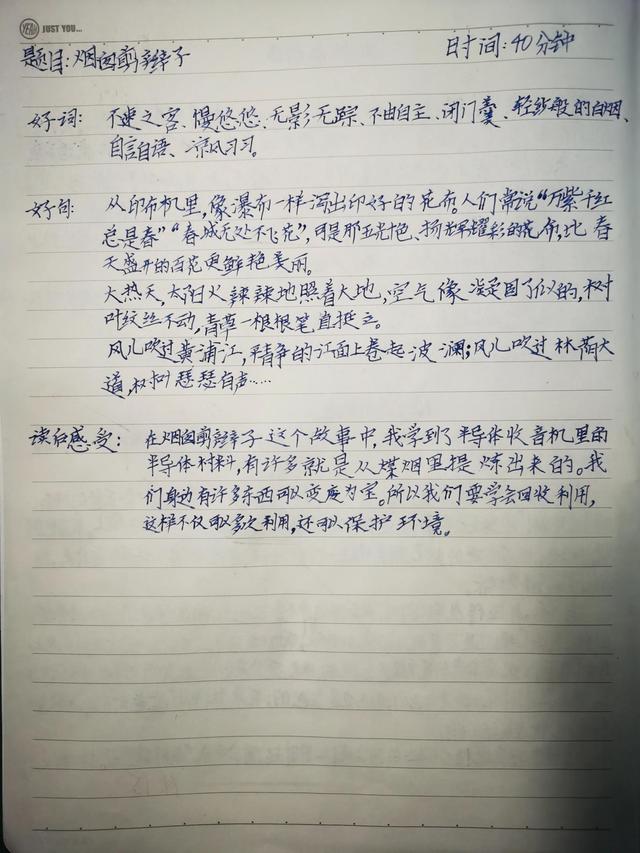 YEAH JUST YOU...
题目:烟囱剪辫子 时间:40分钟
好词: 不速之客、慢悠悠、无影无踪、不由自主、闭门羹、轻纱般的白烟、
自言自语、凉风习习。
好句: 从印布机里,像瀑布一样泻出印好的花布。人们常说“万紫千红
总是春”“春城无处不飞花”,可是那五光十色、扬辉耀彩的花布,比春
天盛开的百花更鲜艳美丽。
大热天,太阳火辣辣地照着大地,空气像凝固了似的,树
叶纹丝不动,青草一根根笔直挺立。
风儿吹过黄浦江,平静的江面上卷起波澜;风儿吹过林荫大
道,树叶瑟瑟有声……
读后感受: 在烟囱剪辫子这个故事中,我学到了半导体收音机里的
半导体材料,有许多就是从煤烟里提炼出来的。我
们身边有许多东西可以变废为宝。所以我们要学会回收利用,
这样不仅可以多次利用,还可以保护环境。